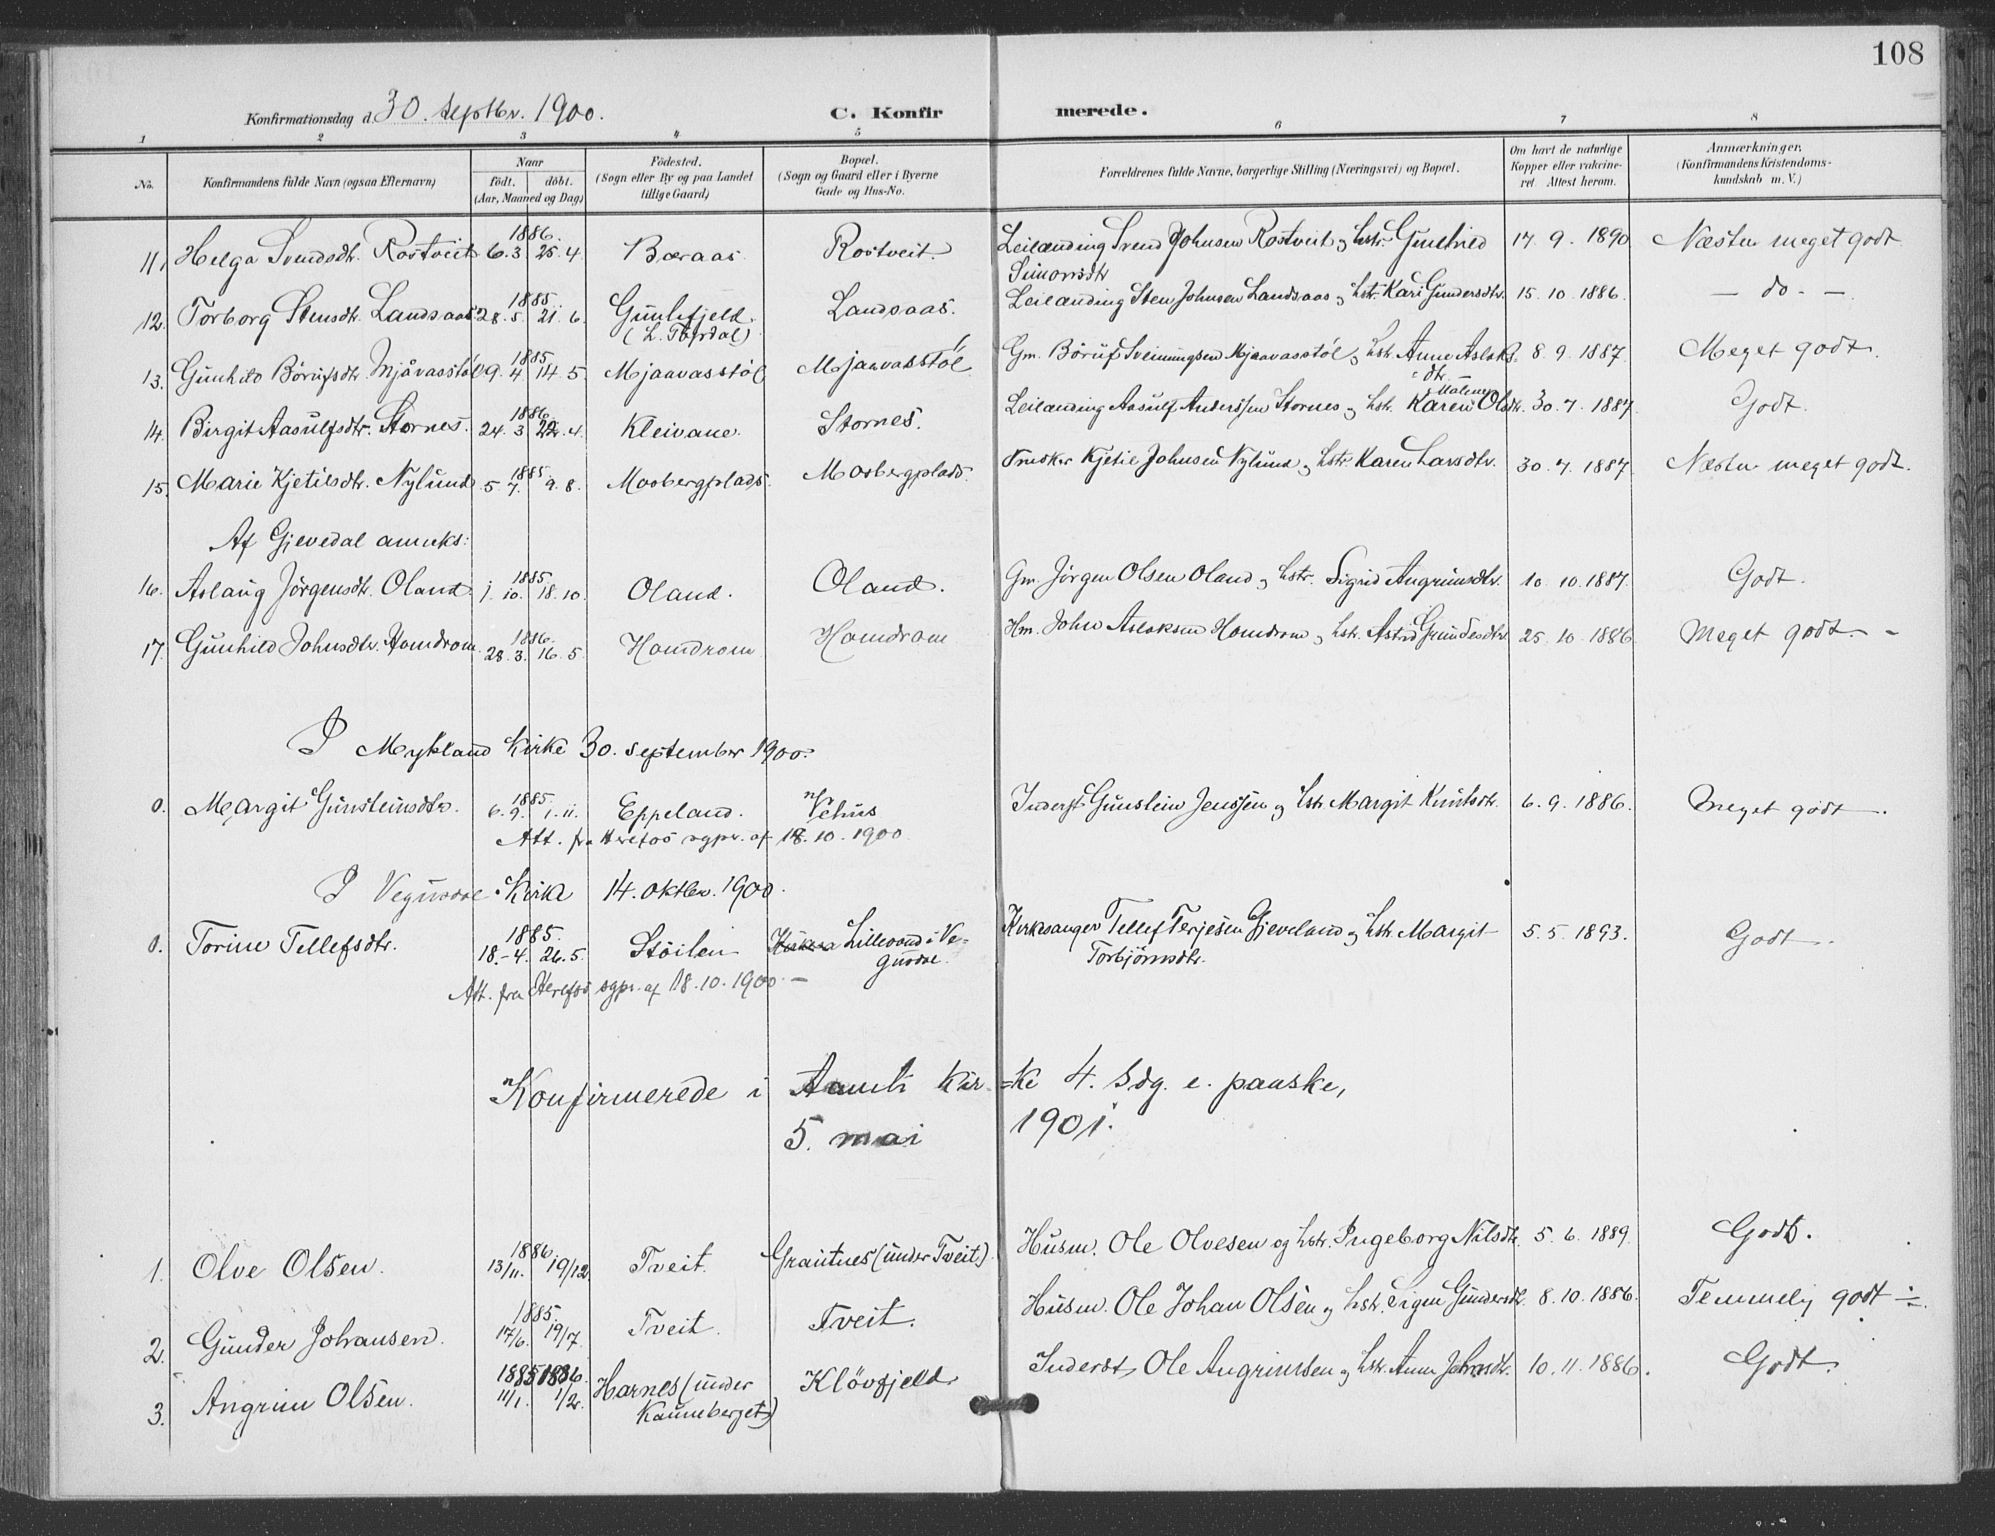 108
Konfirmationsdag d. 30. septbr. 1900. C. Konfirmerede.
1 2 3 4 5 6 7 8
No. Konfirmandens fulde Navn (ogsaa Efternavn) Naar født. døbt. (Aar, Maaned og Dag) Fødested. (Sogn eller By og paa Landet tillige Gaard) Bopæl. (Sogn og Gaard eller i Byerne Gade og Hus-No. Forældrenes fulde Navne, borgerlige Stilling (Næringsvei) og Bopæl. Om havt de naturlige Kopper eller vakcineret. Attest herom. Anmærkninger. (Konfirmandens Kristendomskundskab m. V.)
11. Helga Svendsdtr. Rostveit 1886. 6.3. 25.4 Bæraas Rostveit. Leilænding Svend Johnsen Rostveit og hstr. Gunhild Simonsdtr 17. 9. 1890 Næsten meget godt
12. Torborg Stensdtr. Landsaas 1885 28.5. 21.6. Gunlefjeld (L. Tørdal) Landsaas. Leilænding Sten Johnsen Landsaas og hstr. Kari Gundersdtr. 15. 10. 1886. — do. —
13. Gunhild Børufsdtr. Mjåvasstøl 1885 9.4 14.5. Mjaavasstøl Mjaavasstøl Gm. Børuf Sveinungsen Mjaavasstøl og hstr. Anne Aslaks=dtr. 8. 9. 1887. Meget godt.
14. Birgit Aasulfsdtr. Stornes. 1886 24.3 22.4. Kleivane. Stornes. Leilænding Aasulf Anderssen Stornes og hstr. Karen Malene Olsdtr. 30. 7. 1887. Godt.
15. Marie Kjetilsdtr. Nylund 1885 5.7. 9.8. Mosbergplads. Mosbergplads. Kjetil Johnsen Nylund og hstr Karen Larsdtr. 30. 7. 1887. Næsten meget godt.
Af Gjevedal anneks:
16. Aslaug Jørgensdtr. Oland 1885. 1.10. 18.10. Oland. Oland. Gm. Jørgen Olsen Oland og hstr. Sigrid Angrimsdtr. 10. 10. 1887. Godt.
17. Gunhild Johnsdtr. Homdrom. 1886. 28.3. 16.5. Homdrom Homdrom Hm. John Aslaksen Homdrom og hstr. Astrid Gundersdtr. 25. 10. 1886. Meget godt. -
I Mykland Kirke 30. september 1900.
0. Margit Gunsteinsdtr. 1885. 6.9. 1.11. Eppeland. Vehus Inderst Gunstein Jenssen og hstr Margit Knutsdtr. 6. 9. 1886. Meget godt.
Att. fra Herefos sgpr. af 18. 10. 1900.
I Vegusdal Kirke 14. oktbr. 1900.
0. Torine Tellefsdtr. 1885 18.-4. 26.5. Støilen Lillevand i Ve-gusdal. Kirkesanger Tellef Terjesen Gjeveland og hstr. Margit Torbjørnsdtr. 5. 5. 1893. Godt.
Att. fra Herefos sgpr. af 18. 10. 1900. —
Konfirmerede i Aamli Kir=ke 4. sdg. e. paaske,
5. mai 1901.
1. Olve Olsen. 1886 13/11. 19/12. Tveit. Grautnes (under Tveit). Husm. Ole Olvesen og hstr. Ingeborg Nilsdtr. 5. 6. 1889. Godt.
2. Gunder Johansen. 1885. 17/6. 19/7. Tveit. Tveit. Husm. Ole Johan Olsen og hstr. Sigen Gundersdtr. 8. 10. 1886. Temmelig godt ÷.
3. Angrim Olsen. 1885 1886. 11/1. 1/2. Harnes (under Kauneberget) Kløvfjeld. Inderst Ole Angrimsen og hstr. Anne Johnsdtr. 10. 11. 1886. Godt.